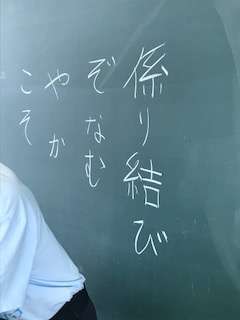 係り結び
ぞなむ
やか
こそ